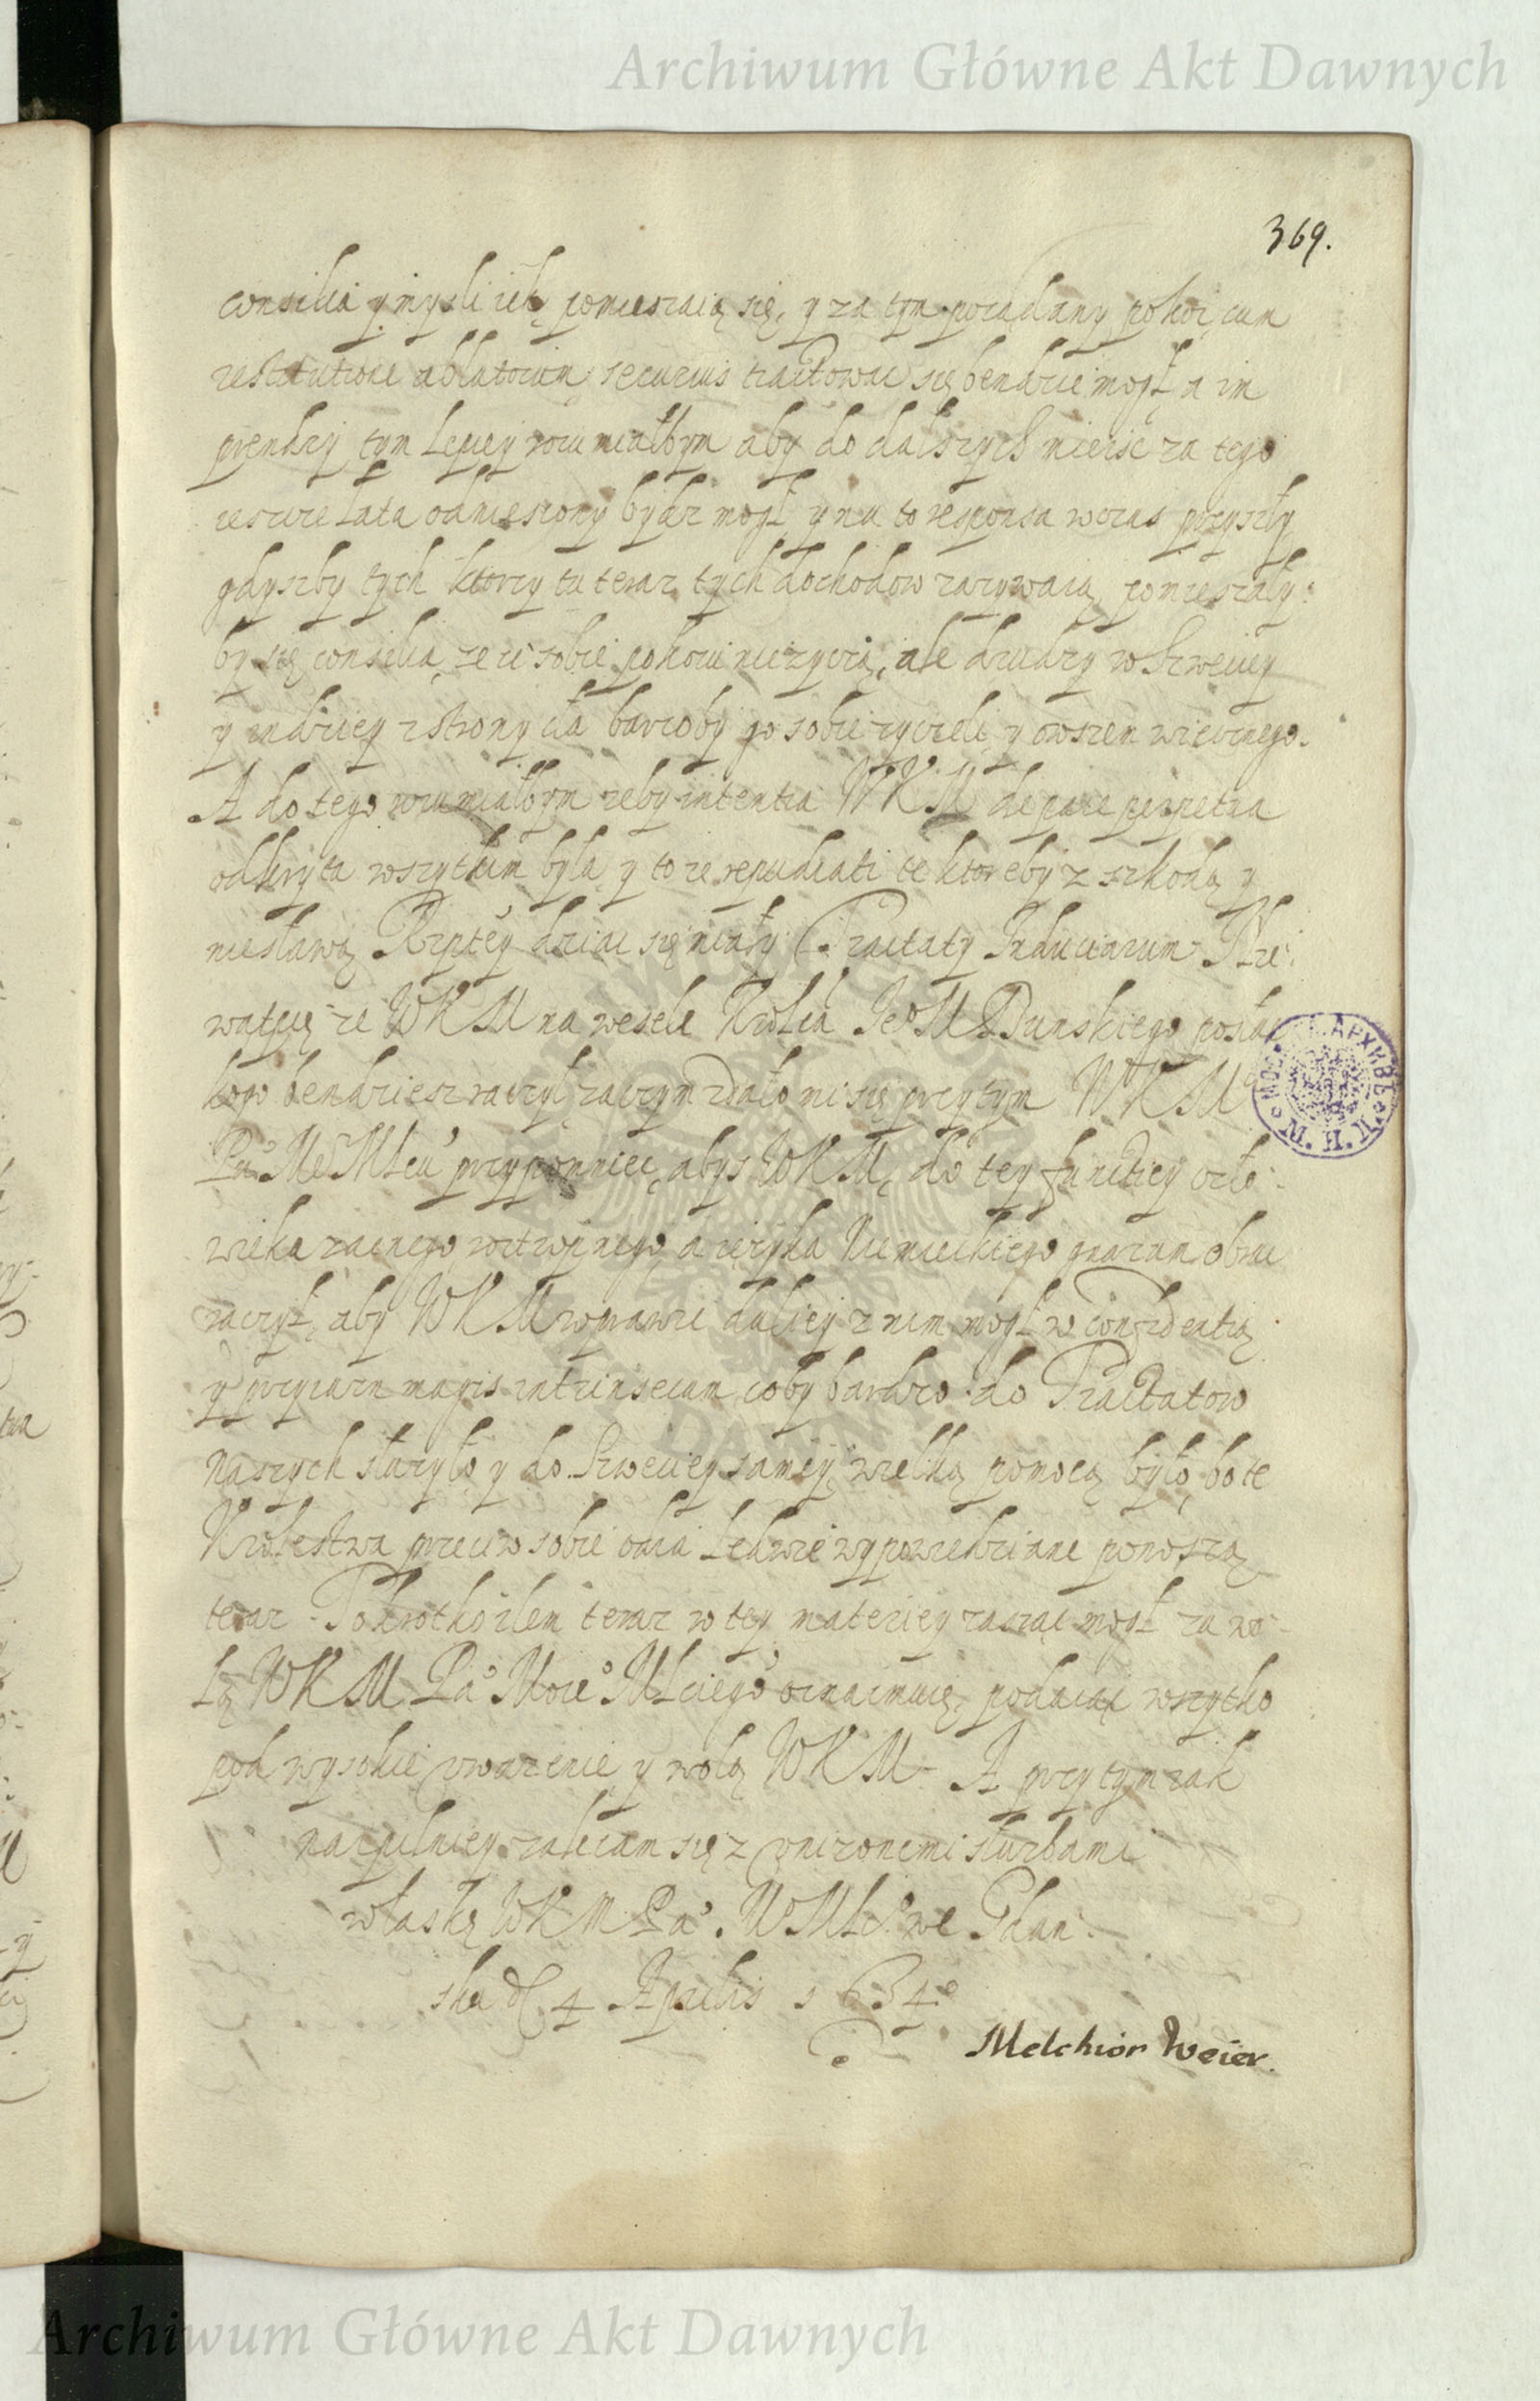 Archiwum Główne Akt Dawnych
369.
consilia y mysli ich pomieszaią się, y za tym pożądany pokoi cum
restitutione ablatorum securius tractowac się bendzie mogł a im
prendzy tym lepiey rozumiałbym aby do dalszych mieisc za tego
ieszcze lata odniesiony bydz mogł y na to responsa wczas przyszły
gdyszby tych ktorzy tu teraz tych dochodow zazywaią pomieszały
by się consilia, ze ci sobie pokoiu nieżyczą, ale drudzy w Szweciey
y indziey z strony cła barzoby go sobie zyczeli y owszem wiecznego.
A do tego rozumiałbym zeby intentia WKM de pace perpetua
odkryta wszytkim była y to ze repudiati te ktoreby z szkodą y
niesławą Rzptey dziac się miały Tractaty Induciarum Nie
wątpię ze WKM na wesele Krola Je° M Dunskiego posłac
kogo bendziesz raczył, zaczym zdało mi się przytym WKM
Pu M° MLcu przypomniec, abys WKM, do tey functiey czło-
wieka zacnego y ięzyka Niemieckiego gnarum obrac
raczył, aby WKM wprawdzie daliey z nim mogł w confidentią
y przyiazn magis intrinsecam coby bardzo do Tractatow
naszych słuzyło y do Szweciey samey wielką pomocą było, bo te
Krolestwa przeciw sobie odia ledwie wypowiedziane ponoszą
teraz. Pokrotkożem teraz w tey materiey zacząc mogł za wo-
lą WKM Pa° Moie° MLciego oznaimuię, podaiąc wszytko
pod wysokie uwazenie y wolą WKM. A przytym iak
napilniey zalecam się z unizonemi słuzbami
w łaskę WKM Pa° M° MLci° we Gdan-
sku d 4 Aprilis 1634°
Melchior Weier.
Archiwum Główne Akt Dawnych